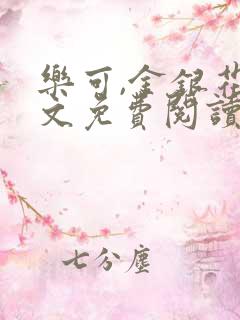 樂可,金銀花
文免費閱讀
七分塵